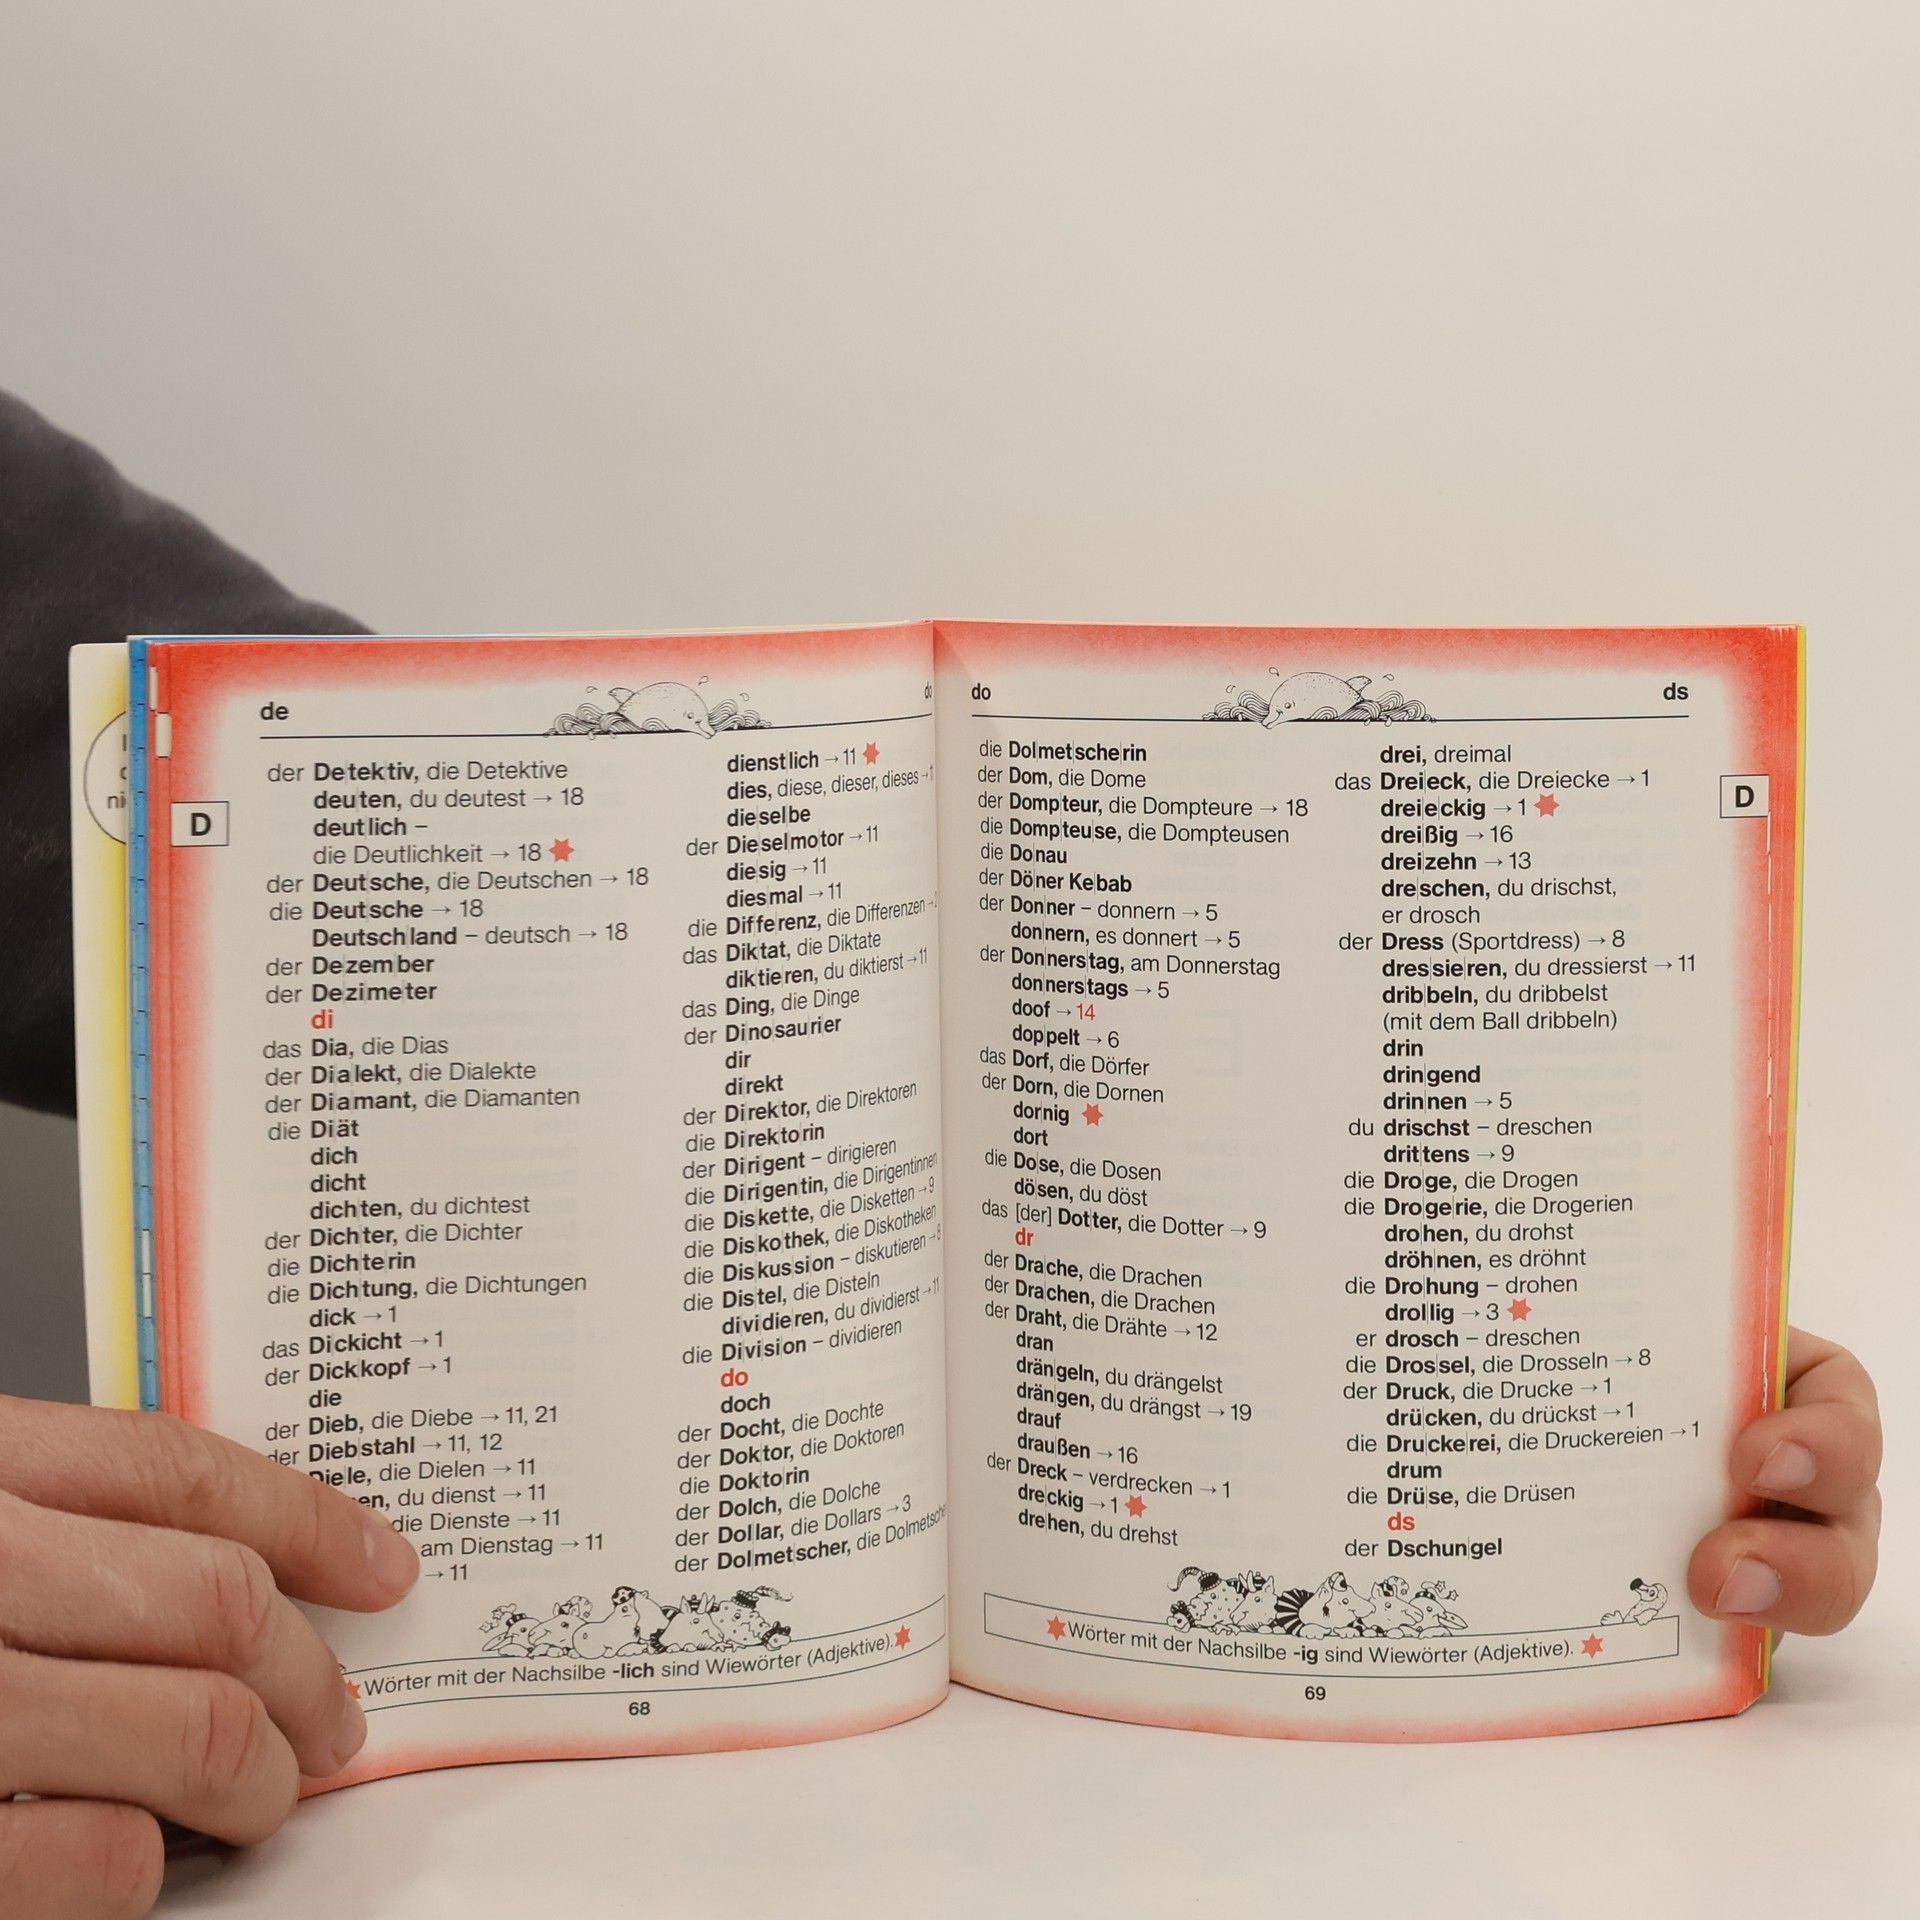 de
do
D
der De|tek|tiv, die Detektive
deu|ten, du deutest → 18
deut|lich –
die Deutlichkeit → 18
der Deut|sche, die Deutschen → 18
die Deut|sche → 18
Deutsch|land – deutsch → 18
der De|zem|ber
der De|zi|me|ter
di
das Dia, die Dias
der Di|a|lekt, die Dialekte
der Di|a|mant, die Diamanten
die Di|ät
dich
dicht
dich|ten, du dichtest
der Dich|ter, die Dichter
die Dich|te|rin
die Dich|tung, die Dichtungen
dick → 1
das Di|ckicht → 1
der Dick|kopf → 1
die
der Dieb, die Diebe → 11, 21
der Dieb|stahl → 11, 12
Die|le, die Dielen → 11
en, du dienst → 11
die Dienste → 11
am Dienstag → 11
→ 11
dienst|lich → 11
dies, diese, dieser, dieses → 1
die|sel|be
der Die|sel|mo|tor → 11
die|sig → 11
dies|mal → 11
die Dif|fe|renz, die Differenzen → 2
das Dik|tat, die Diktate
dik|tie|ren, du diktierst → 11
das Ding, die Dinge
der Di|no|sau|ri|er
dir
di|rekt
der Di|rek|tor, die Direktoren
die Di|rek|to|rin
der Di|ri|gent – dirigieren
die Di|ri|gen|tin, die Dirigentinnen
die Dis|ket|te, die Disketten → 9
die Dis|ko|thek, die Diskotheken
die Dis|kus|si|on – diskutieren → 8
die Dis|tel, die Disteln
di|vi|die|ren, du dividierst → 11
die Di|vi|si|on – dividieren
do
doch
der Docht, die Dochte
der Dok|tor, die Doktoren
die Dok|to|rin
der Dolch, die Dolche
der Dol|lar, die Dollars → 3
der Dol|met|scher, die Dolmetsche
Wörter mit der Nachsilbe -lich sind Wiewörter (Adjektive).
68
do
ds
D
die Dol|met|sche|rin
der Dom, die Dome
der Domp|teur, die Dompteure → 18
die Domp|teu|se, die Dompteusen
die Do|nau
der Dö|ner Ke|bab
der Don|ner – donnern → 5
don|nern, es donnert → 5
der Don|ners|tag, am Donnerstag
don|ners|tags → 5
doof → 14
dop|pelt → 6
das Dorf, die Dörfer
der Dorn, die Dornen
dor|nig
dort
die Do|se, die Dosen
dö|sen, du döst
das [der] Dot|ter, die Dotter → 9
dr
der Dra|che, die Drachen
der Dra|chen, die Drachen
der Draht, die Drähte → 12
dran
drän|geln, du drängelst
drän|gen, du drängst → 19
drauf
drau|ßen → 16
der Dreck – verdrecken → 1
dre|ckig → 1
dre|hen, du drehst
drei, dreimal
das Drei|eck, die Dreiecke → 1
drei|e|ckig → 1
drei|ßig → 16
drei|zehn → 13
dre|schen, du drischst,
er drosch
der Dress (Sportdress) → 8
dres|sie|ren, du dressierst → 11
drib|beln, du dribbelst
(mit dem Ball dribbeln)
drin
drin|gend
drin|nen → 5
du drischst – dreschen
drit|tens → 9
die Dro|ge, die Drogen
die Dro|ge|rie, die Drogerien
dro|hen, du drohst
dröh|nen, es dröhnt
die Dro|hung – drohen
drol|lig → 3
er drosch – dreschen
die Dros|sel, die Drosseln → 8
der Druck, die Drucke → 1
drü|cken, du drückst → 1
die Dru|cke|rei, die Druckereien → 1
drum
die Drü|se, die Drüsen
ds
der Dschun|gel
Wörter mit der Nachsilbe -ig sind Wiewörter (Adjektive).
69